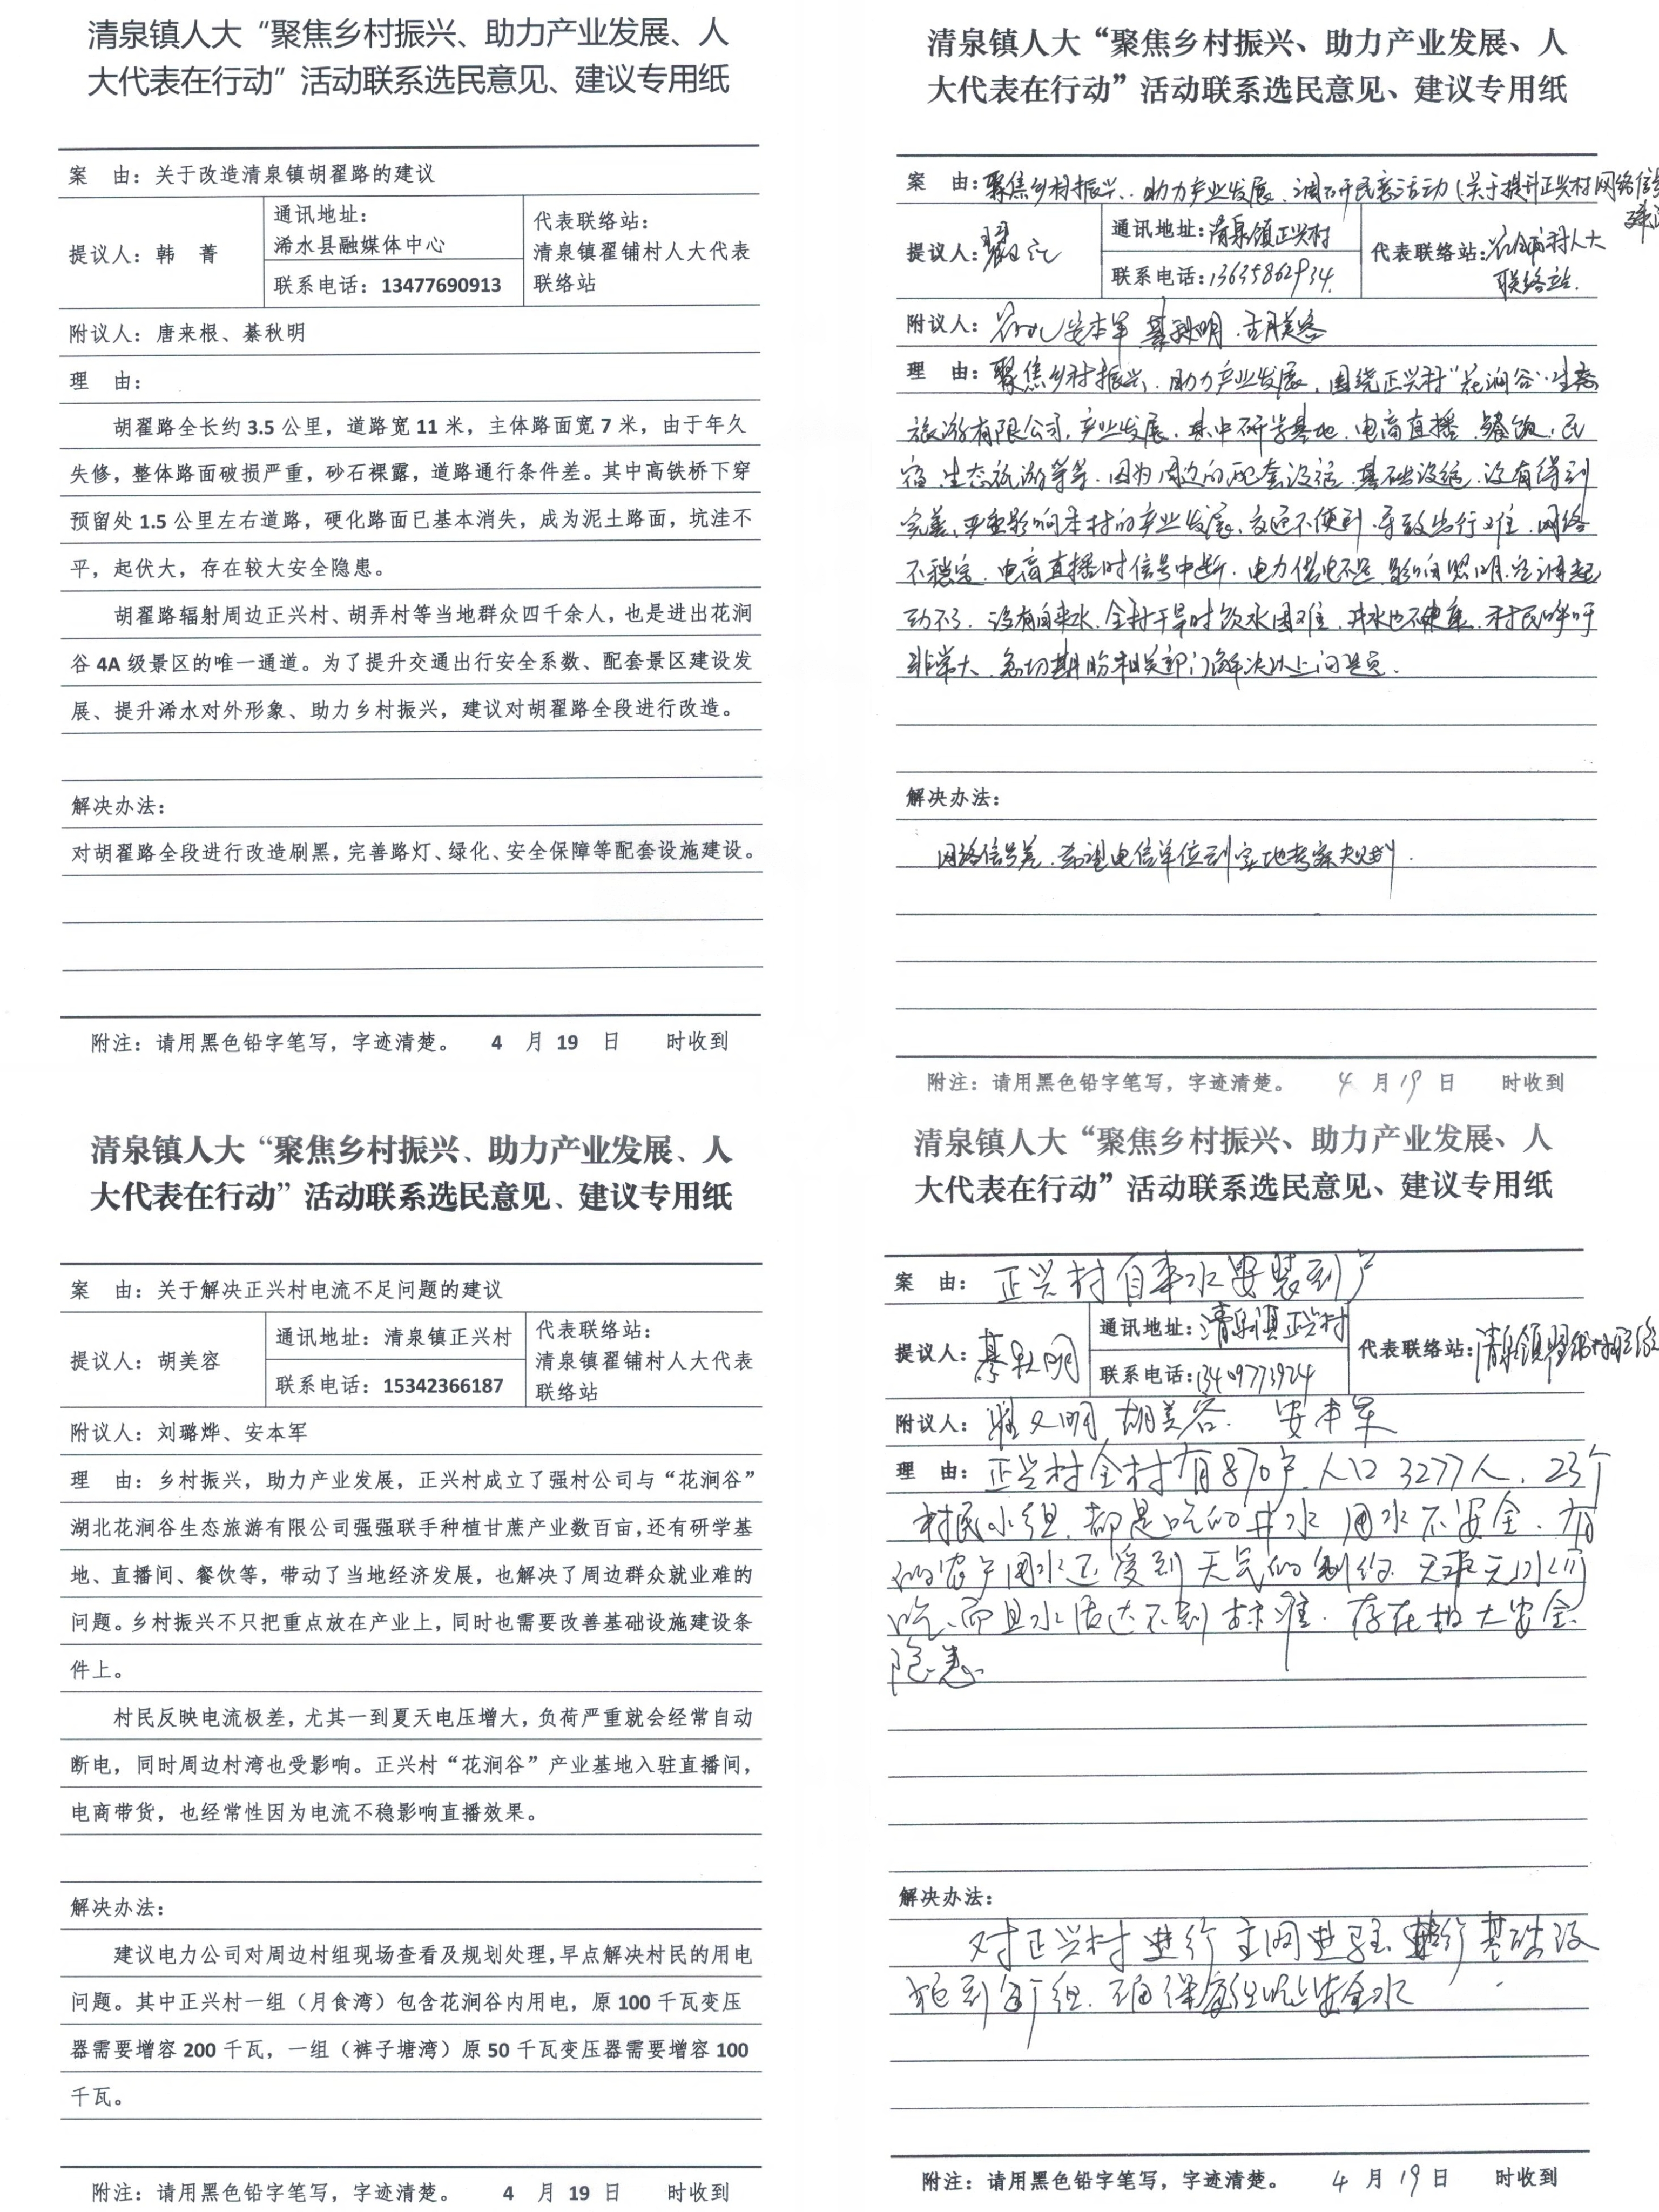 清泉镇人大“聚焦乡村振兴、助力产业发展、人
大代表在行动”活动联系选民意见、建议专用纸
案 由：关于改造清泉镇胡翟路的建议
提议人：韩 菁
通讯地址：
浠水县融媒体中心
联系电话：13477690913
代表联络站：
清泉镇翟铺村人大代表
联络站
附议人：唐来根、綦秋明
理 由：
胡翟路全长约 3.5 公里，道路宽 11 米，主体路面宽 7 米，由于年久
失修，整体路面破损严重，砂石裸露，道路通行条件差。其中高铁桥下穿
预留处 1.5 公里左右道路，硬化路面已基本消失，成为泥土路面，坑洼不
平，起伏大，存在较大安全隐患。
胡翟路辐射周边正兴村、胡弄村等当地群众四千余人，也是进出花涧
谷 4A 级景区的唯一通道。为了提升交通出行安全系数、配套景区建设发
展、提升浠水对外形象、助力乡村振兴，建议对胡翟路全段进行改造。
解决办法：
对胡翟路全段进行改造刷黑，完善路灯、绿化、安全保障等配套设施建设。
附注：请用黑色铅字笔写，字迹清楚。 4 月 19 日 时收到
清泉镇人大“聚焦乡村振兴、助力产业发展、人
大代表在行动”活动联系选民意见、建议专用纸
案 由：聚焦乡村振兴、助力产业发展、调研民意活动（关于提升正兴村网络信号
建议
提议人：
通讯地址：清泉镇正兴村
联系电话：13635862934
代表联络站：翟铺村人大
联络站.
附议人：安本军 綦秋明 胡美容
理 由：聚焦乡村振兴、助力产业发展，围绕正兴村“花涧谷”生态
旅游有限公司，产业发展，集中研学基地，电商直播，餐饮，民
宿，生态旅游等等，因为周边的配套设施，基础设施，没有得到
完善，严重影响本村的产业发展，交通不便利，导致出行难，网络
不稳定，电商直播时信号中断，电力供电不足，影响照明，空调起
动不了，没有自来水，全村干旱时饮水困难，井水也不健康，村民呼吁
非常大，急切期盼相关部门解决以上问题.
解决办法：
网络信号差，希望电信单位到实地考察规划.
附注：请用黑色铅字笔写，字迹清楚。 4 月 19 日 时收到
清泉镇人大“聚焦乡村振兴、助力产业发展、人
大代表在行动”活动联系选民意见、建议专用纸
案 由：关于解决正兴村电流不足问题的建议
提议人：胡美容
通讯地址：清泉镇正兴村
联系电话：15342366187
代表联络站：
清泉镇翟铺村人大代表
联络站
附议人：刘璐烨、安本军
理 由：乡村振兴，助力产业发展，正兴村成立了强村公司与“花涧谷”
湖北花涧谷生态旅游有限公司强强联手种植甘蔗产业数百亩，还有研学基
地、直播间、餐饮等，带动了当地经济发展，也解决了周边群众就业难的
问题。乡村振兴不只把重点放在产业上，同时也需要改善基础设施建设条
件上。
村民反映电流极差，尤其一到夏天电压增大，负荷严重就会经常自动
断电，同时周边村湾也受影响。正兴村“花涧谷”产业基地入驻直播间，
电商带货，也经常性因为电流不稳影响直播效果。
解决办法：
建议电力公司对周边村组现场查看及规划处理，早点解决村民的用电
问题。其中正兴村一组（月食湾）包含花涧谷内用电，原 100 千瓦变压
器需要增容 200 千瓦，一组（裤子塘湾）原 50 千瓦变压器需要增容 100
千瓦。
附注：请用黑色铅字笔写，字迹清楚。 4 月 19 日 时收到
清泉镇人大“聚焦乡村振兴、助力产业发展、人
大代表在行动”活动联系选民意见、建议专用纸
案 由：正兴村自来水安装到户
提议人：綦秋明
通讯地址：清泉镇正兴村
联系电话：13409773924
代表联络站：清泉镇翟铺村联络
附议人：胡美容. 安本军
理 由：正兴村全村有870户，人口3277人，23个
村民小组，都是吃的井水，用水不安全，有
的农户用水还受到天气的制约，天旱无水
吃，而且水质达不到标准，存在极大安全
隐患
解决办法：
对正兴村进行主网进驻，进行基础设
施到户组，确保家组吃上安全水
附注：请用黑色铅字笔写，字迹清楚。 4 月 19 日 时收到